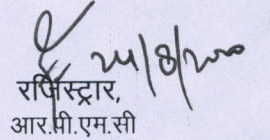 24/8/2000
रजिस्ट्रार,
आर.पी.एम.सी